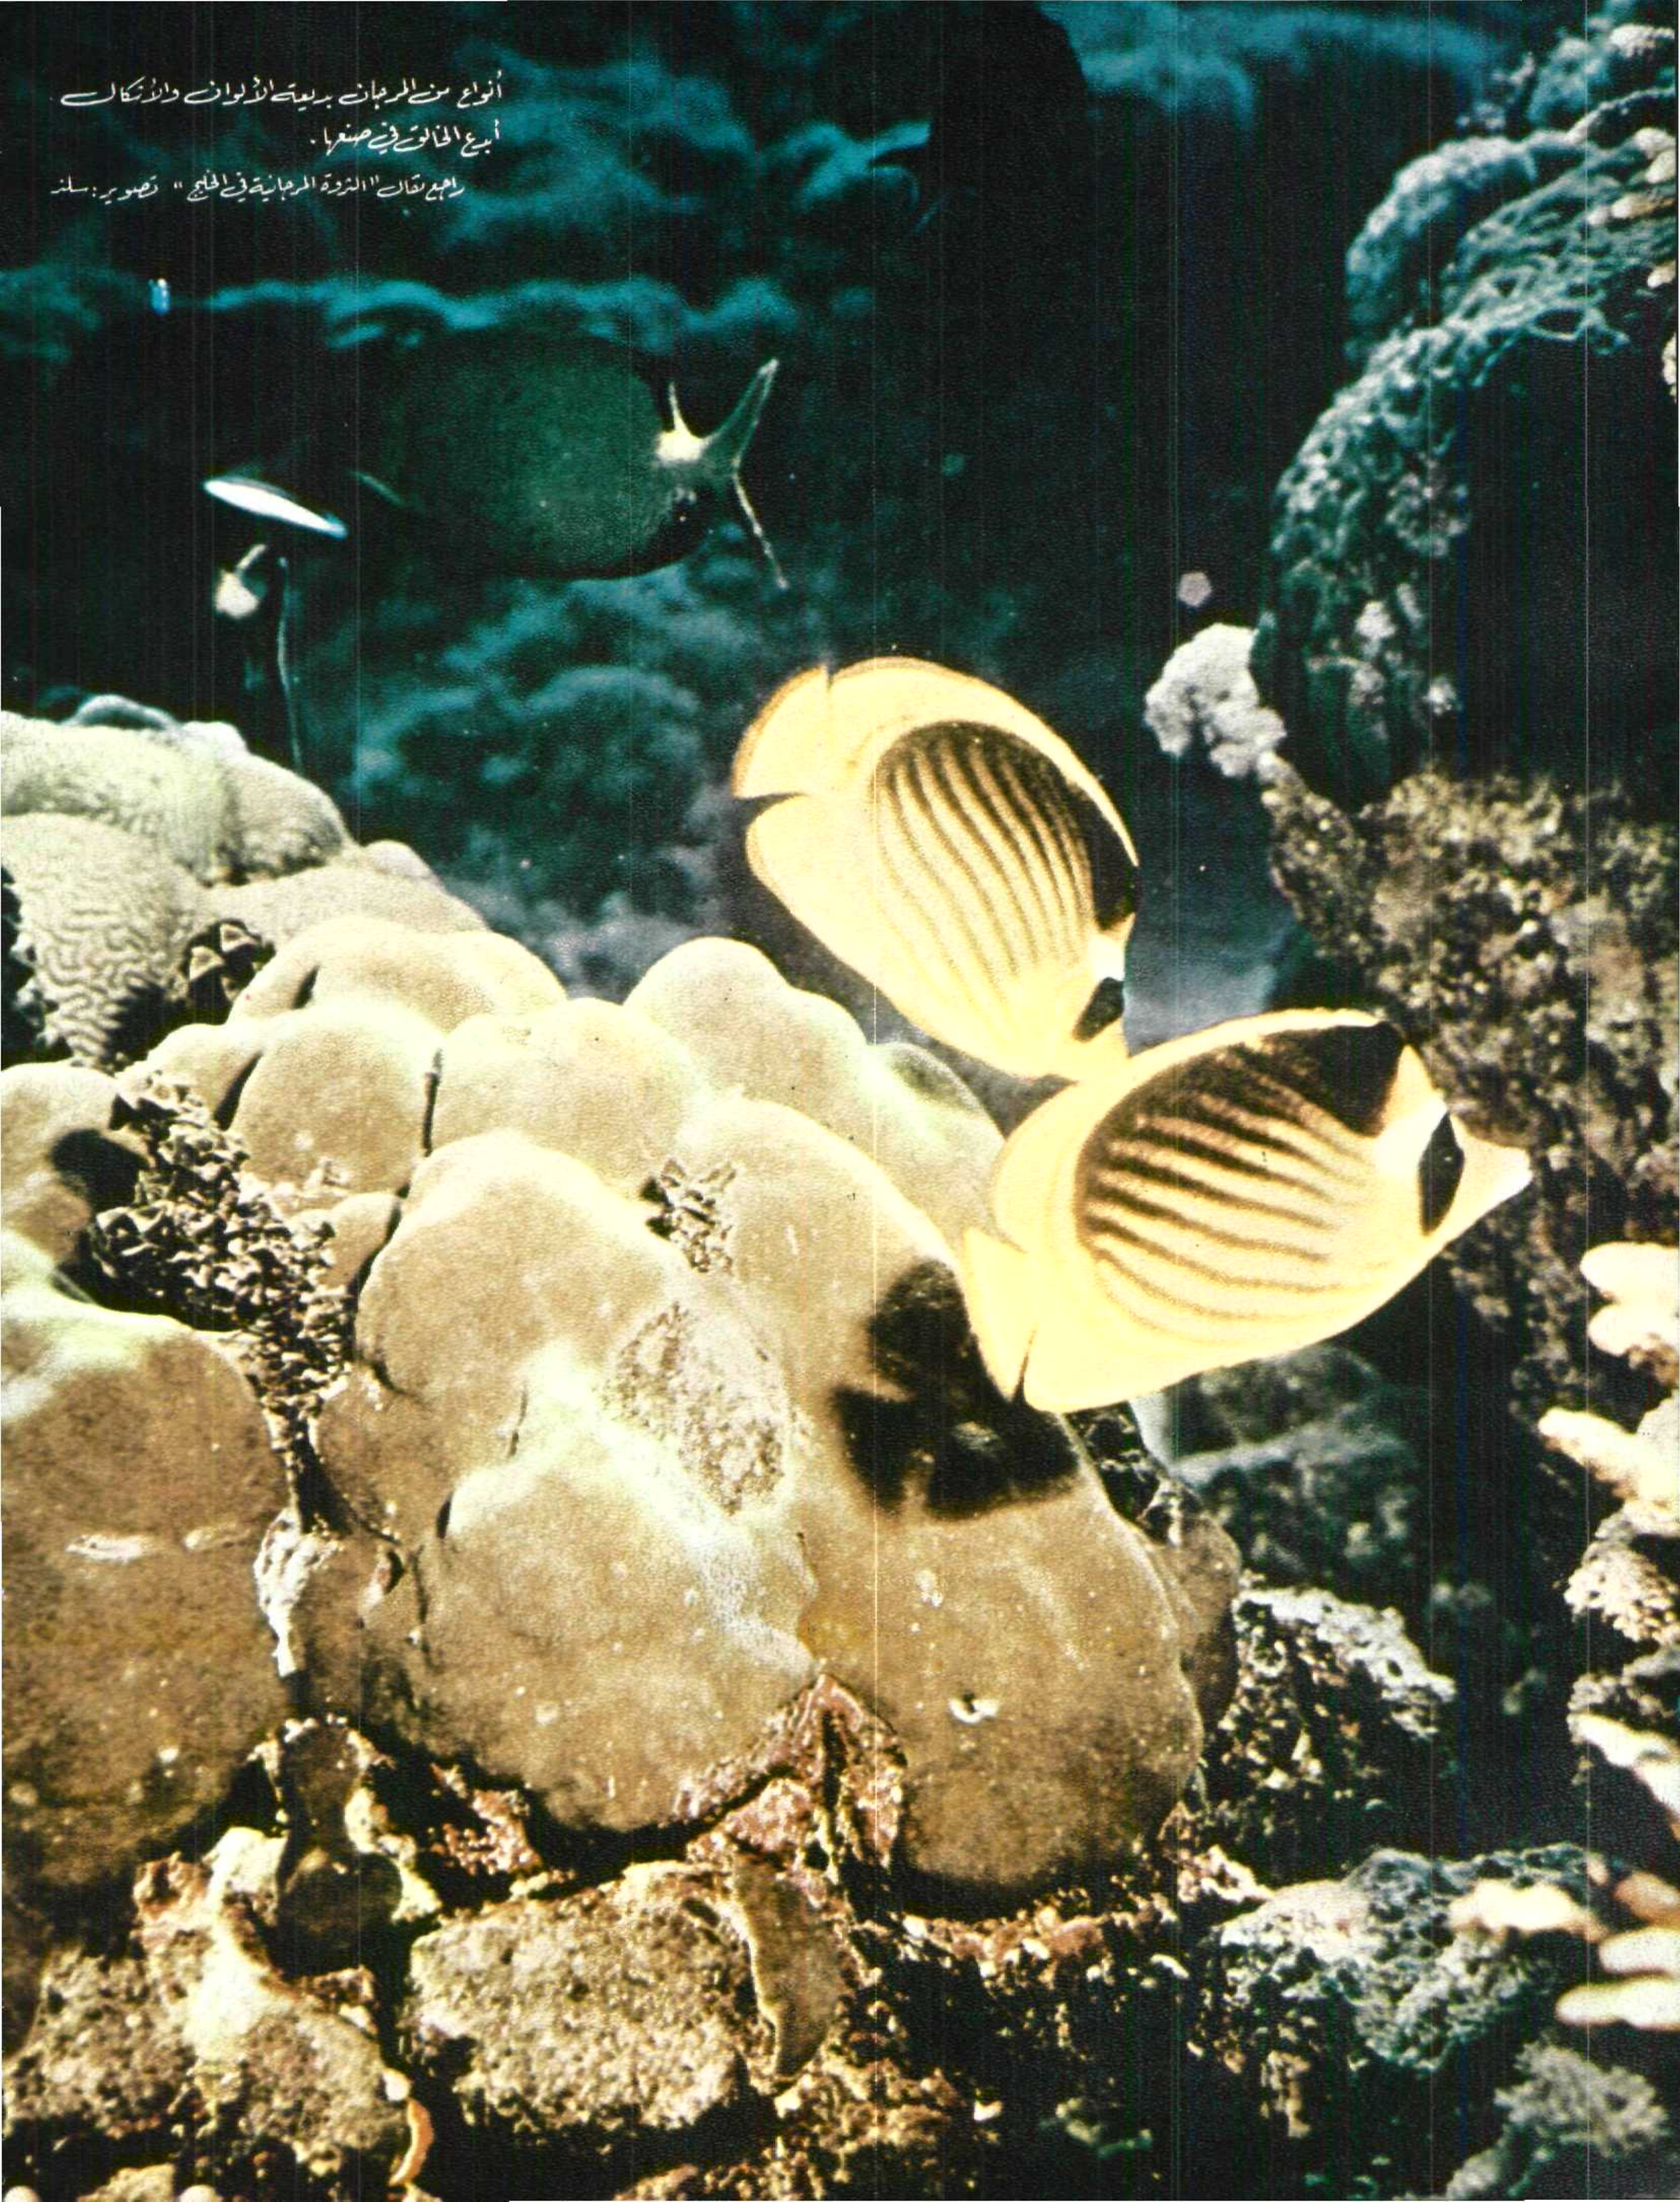 أنواع من المرجان بديعة الألوان والأشكال
أبدع الخالق في صنعها.
راجع مقال "الثروة المرجانية في الخليج" تصوير: سلند